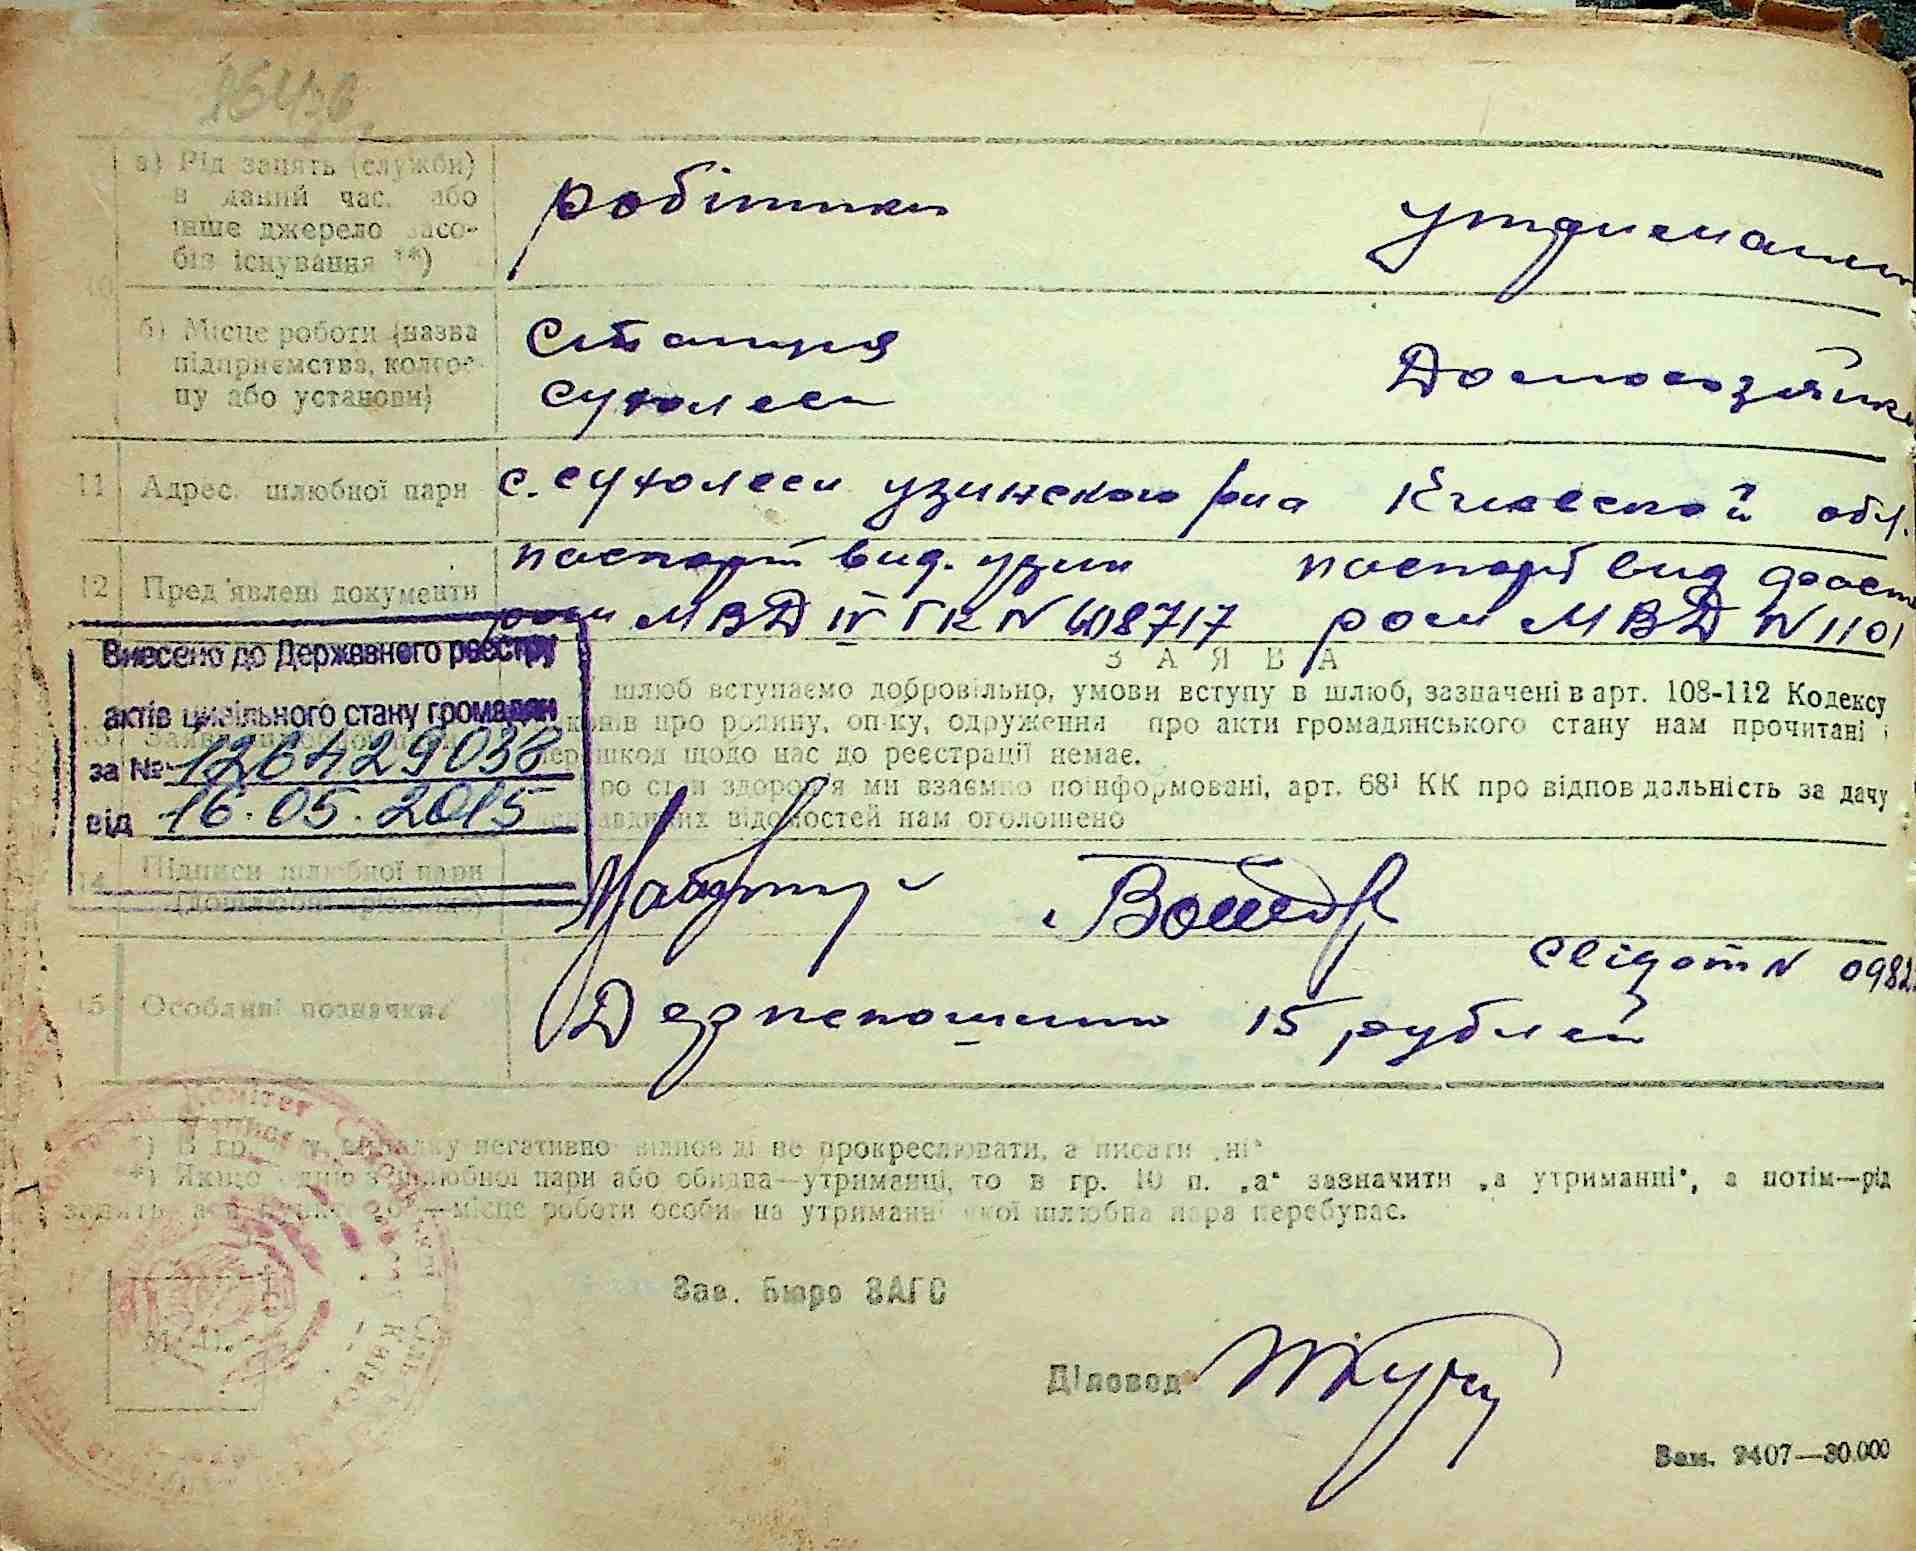 а) Рід занять (служби)
в даний час, або
інше джерело засо-
бів існування **)
робітник
утриманн
б) Місце роботи (назва
підприємства, колгос-
пу або установи)
Станция
Сухолеси
Домохозяйка
11 Адрес шлюбної пари
с. Сухолеси узинского р-на Киевской обл.
12 Пред'явлені документи
паспорт вид. узин
паспорт вид
МВД IV ГК N 608717
МВД N 1101
Внесено до Державного реєстру
актів цивільного стану громадян
за № 126429038
від 16.05.2015
ЗАЯВА
шлюб вступаємо добровільно, умови вступу в шлюб, зазначені в арт. 108-112 Кодексу
про родину, опіку, одруження про акти громадянського стану нам прочитані і
перешкод щодо нас до реєстрації немає.
Про стан здоров'я ми взаємно поінформовані, арт. 68¹ КК про відповідальність за дачу
неправдивих відомостей нам оголошено
14 Підписи шлюбної пари
свідот N 0982
15 Особливі позначки
Держпошлино 15 рублей
*) В гр. випадку негативно відповіді не прокреслювати, а писати „ні“
**) Якщо один з шлюбної пари або обидва—утриманці, то в гр. 10 п. „а“ зазначити „а утриманні“, а потім—рід
занять, а в пункті „б“—місце роботи особи на утриманні якої шлюбна пара перебуває.
Зав. Бюро ЗАГС
Діловод
Зам. 9407—30.000